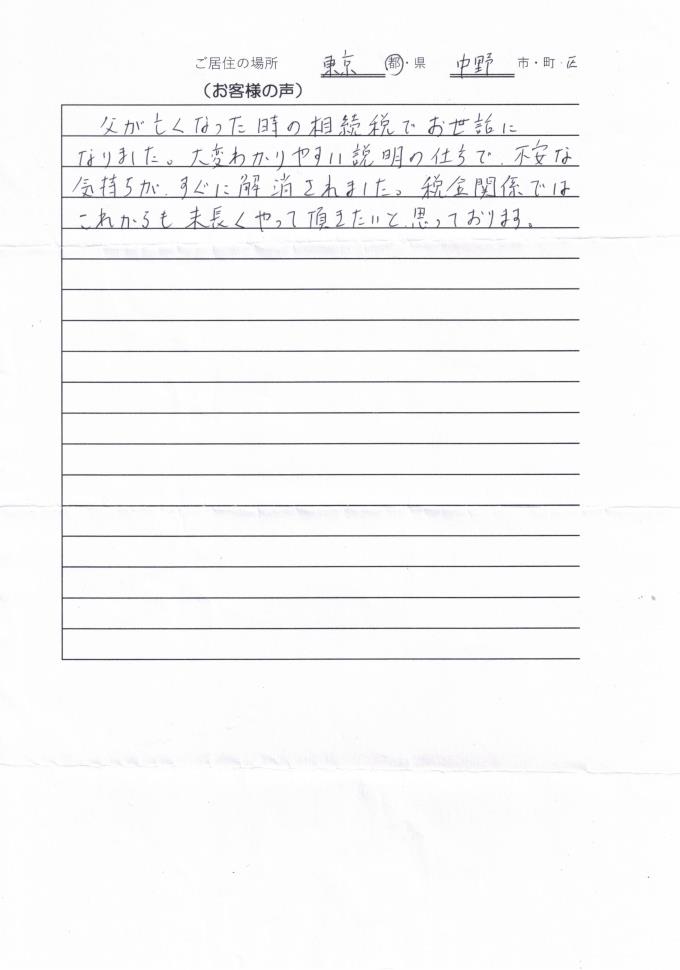 ご居住の場所 東京 都・県 中野 市・町・区
（お客様の声）
父が亡くなった時の相続税でお世話に
なりました。大変わかりやすい説明の仕方で、不安な
気持ちが、すぐに解消されました。税金関係では
これからも末長くやって頂きたいと思っております。